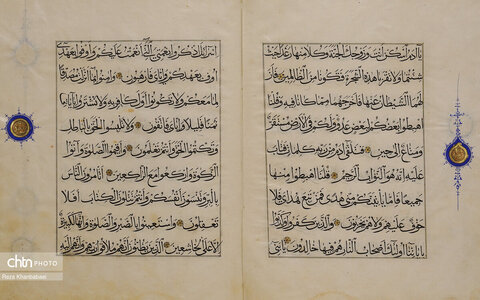 يا آدم اسكن انت وزوجك الجنة وكلا منها رغدا حيث
شئتما ولا تقربا هذه الشجرة فتكونا من الظالمين فاز
لهما الشيطان عنها فاخرجهما مما كانا فيه وقلنا
اهبطوا بعضكم لبعض عدو ولكم في الارض مستقر
ومتاع الى حين فتلقى آدم من ربه كلمات فتاب
عليه انه هو التواب الرحيم قلنا اهبطوا منها
جميعا فاما ياتينكم مني هدى فمن تبع هداي فلا
خوف عليهم ولا هم يحزنون والذين كفروا وكذبوا
باياتنا اولئك اصحاب النار هم فيها خالدون يا بني
اسرائيل اذكروا نعمتي التي انعمت عليكم واوفوا بعهدي
اوف بعهدكم واياي فارهبون وامنوا بما انزلت مصدقا
لما معكم ولا تكونوا اول كافر به ولا تشتروا باياتي
ثمنا قليلا واياي فاتقون ولا تلبسوا الحق بالباطل
وتكتموا الحق وانتم تعلمون واقيموا الصلوة وآتوا
الزكوة واركعوا مع الراكعين اتامرون الناس
بالبر وتنسون انفسكم وانتم تتلون الكتاب افلا
تعقلون واستعينوا بالصبر والصلوة وانها لكبيرة
الا على الخاشعين الذين يظنون انهم ملاقوا ربهم وانهم اليه
chtn PHOTO
Reza Khanbabaei